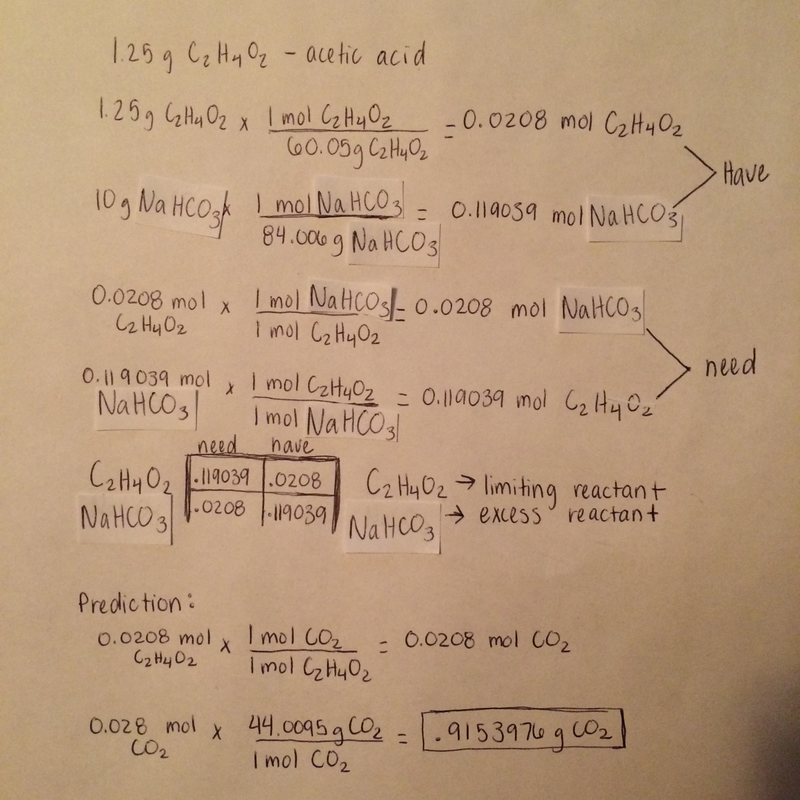 1.25 g C₂H₄O₂ - acetic acid
1.25 g C₂H₄O₂ x 1 mol C₂H₄O₂ / 60.05 g C₂H₄O₂ = 0.0208 mol C₂H₄O₂
Have
10 g NaHCO₃ x 1 mol NaHCO₃ / 84.006 g NaHCO₃ = 0.119039 mol NaHCO₃
0.0208 mol C₂H₄O₂ x 1 mol NaHCO₃ / 1 mol C₂H₄O₂ = 0.0208 mol NaHCO₃
need
0.119039 mol NaHCO₃ x 1 mol C₂H₄O₂ / 1 mol NaHCO₃ = 0.119039 mol C₂H₄O₂
need have
C₂H₄O₂ .119039 .0208 C₂H₄O₂ → limiting reactant
NaHCO₃ .0208 .119039 NaHCO₃ → excess reactant
Prediction:
0.0208 mol C₂H₄O₂ x 1 mol CO₂ / 1 mol C₂H₄O₂ = 0.0208 mol CO₂
0.028 mol CO₂ x 44.0095 g CO₂ / 1 mol CO₂ = .9153976 g CO₂